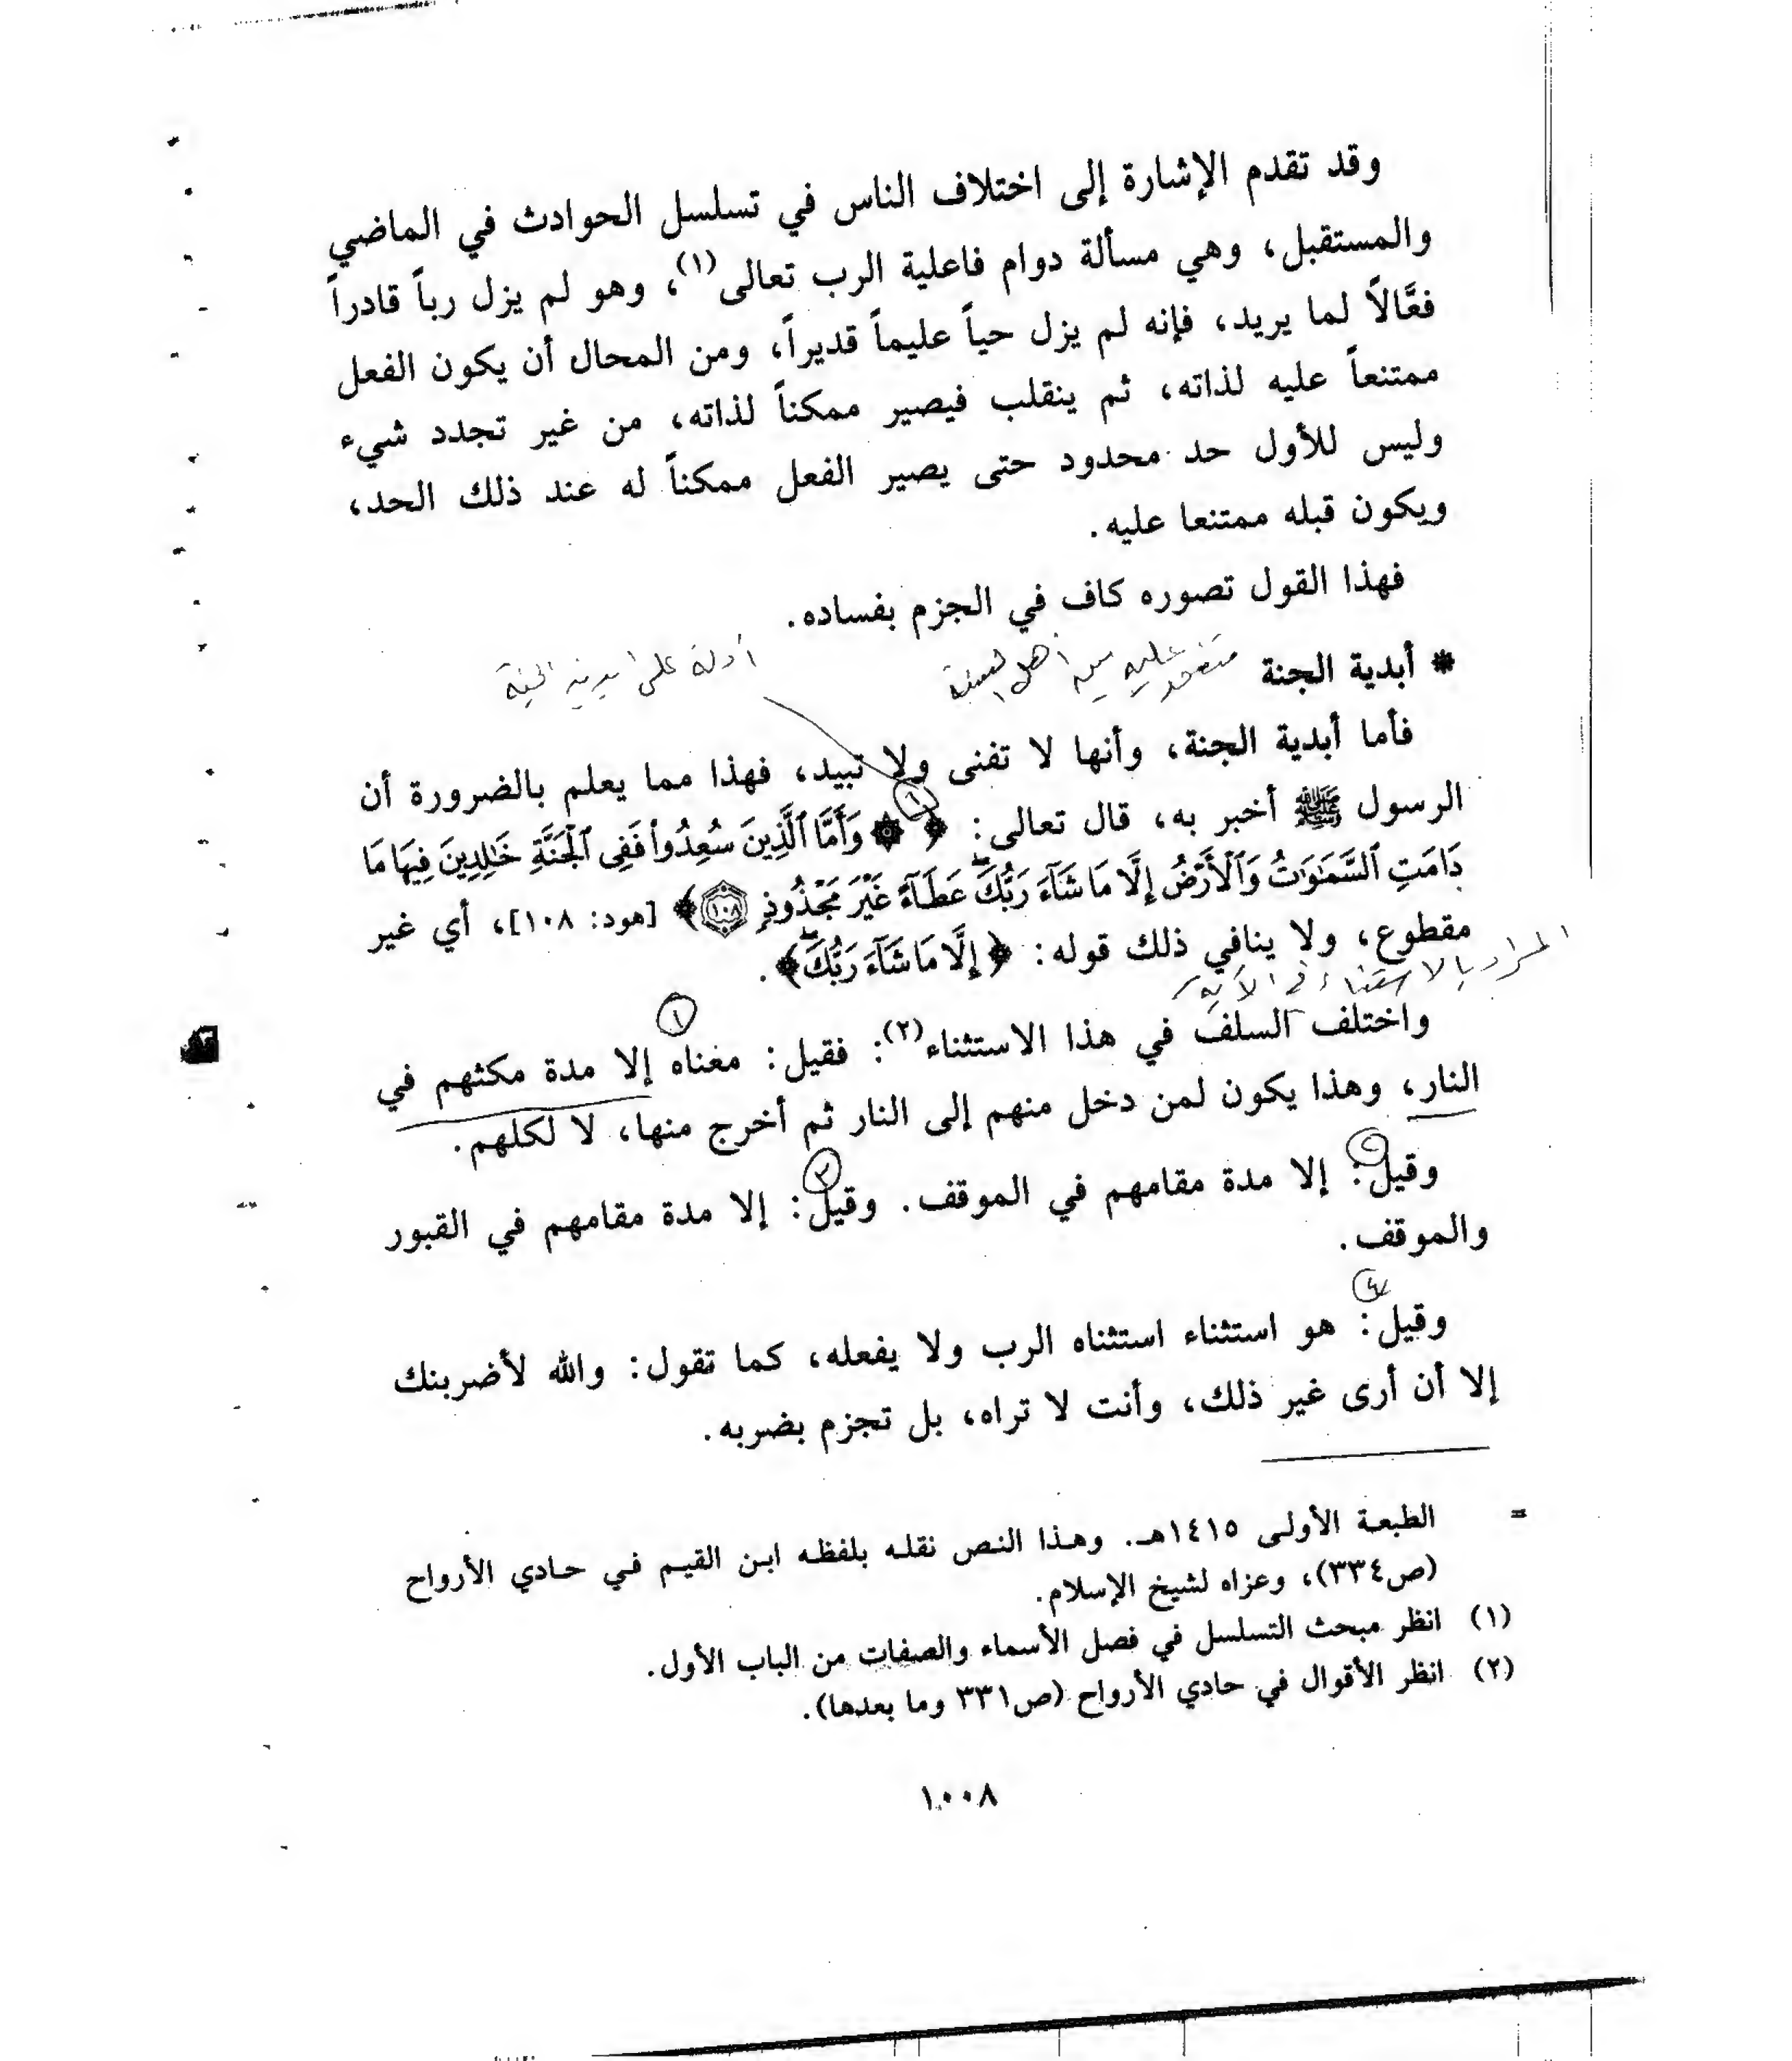 وقد تقدم الإشارة إلى اختلاف الناس في تسلسل الحوادث في الماضي
والمستقبل، وهي مسألة دوام فاعلية الرب تعالى(١)، وهو لم يزل رباً قادراً
فعَّالاً لما يريد، فإنه لم يزل حياً عليماً قديراً، ومن المحال أن يكون الفعل
ممتنعاً عليه لذاته، ثم ينقلب فيصير ممكناً لذاته، من غير تجدد شيء
وليس للأول حد محدود حتى يصير الفعل ممكناً له عند ذلك الحد،
ويكون قبله ممتنعا عليه.
فهذا القول تصوره كاف في الجزم بفساده.
* أبدية الجنة متفق عليه بين أهل السنة أدلة على أبدية الجنة
فأما أبدية الجنة، وأنها لا تفنى ولا تبيد، فهذا مما يعلم بالضرورة أن
الرسول ﷺ أخبر به، قال تعالى: ١ ﴿ ۞ وَأَمَّا ٱلَّذِينَ سُعِدُواْ فَفِى ٱلۡجَنَّةِ خَٰلِدِينَ فِيهَا مَا
دَامَتِ ٱلسَّمَٰوَٰتُ وَٱلۡأَرۡضُ إِلَّا مَا شَآءَ رَبُّكَۖ عَطَآءً غَيۡرَ مَجۡذُوذٖ ١٠٨﴾ [هود: ١٠٨]، أي غير
مقطوع، ولا ينافي ذلك قوله: ﴿إِلَّا مَا شَآءَ رَبُّكَۖ﴾.
المراد بالاستثناء في الآية
واختلف السلف في هذا الاستثناء(٢): فقيل: ١ معناه إلا مدة مكثهم في
النار، وهذا يكون لمن دخل منهم إلى النار ثم أخرج منها، لا لكلهم.
وقيل: ٢ إلا مدة مقامهم في الموقف. وقيل: ٣ إلا مدة مقامهم في القبور
والموقف.
٤
وقيل: هو استثناء استثناه الرب ولا يفعله، كما تقول: والله لأضربنك
إلا أن أرى غير ذلك، وأنت لا تراه، بل تجزم بضربه.
= الطبعة الأولى ١٤١٥هـ. وهذا النص نقله بلفظه ابن القيم في حادي الأرواح
(ص٣٣٤)، وعزاه لشيخ الإسلام.
(١) انظر مبحث التسلسل في فصل الأسماء والصفات من الباب الأول.
(٢) انظر الأقوال في حادي الأرواح (ص٣٣١ وما بعدها).
١٠٠٨